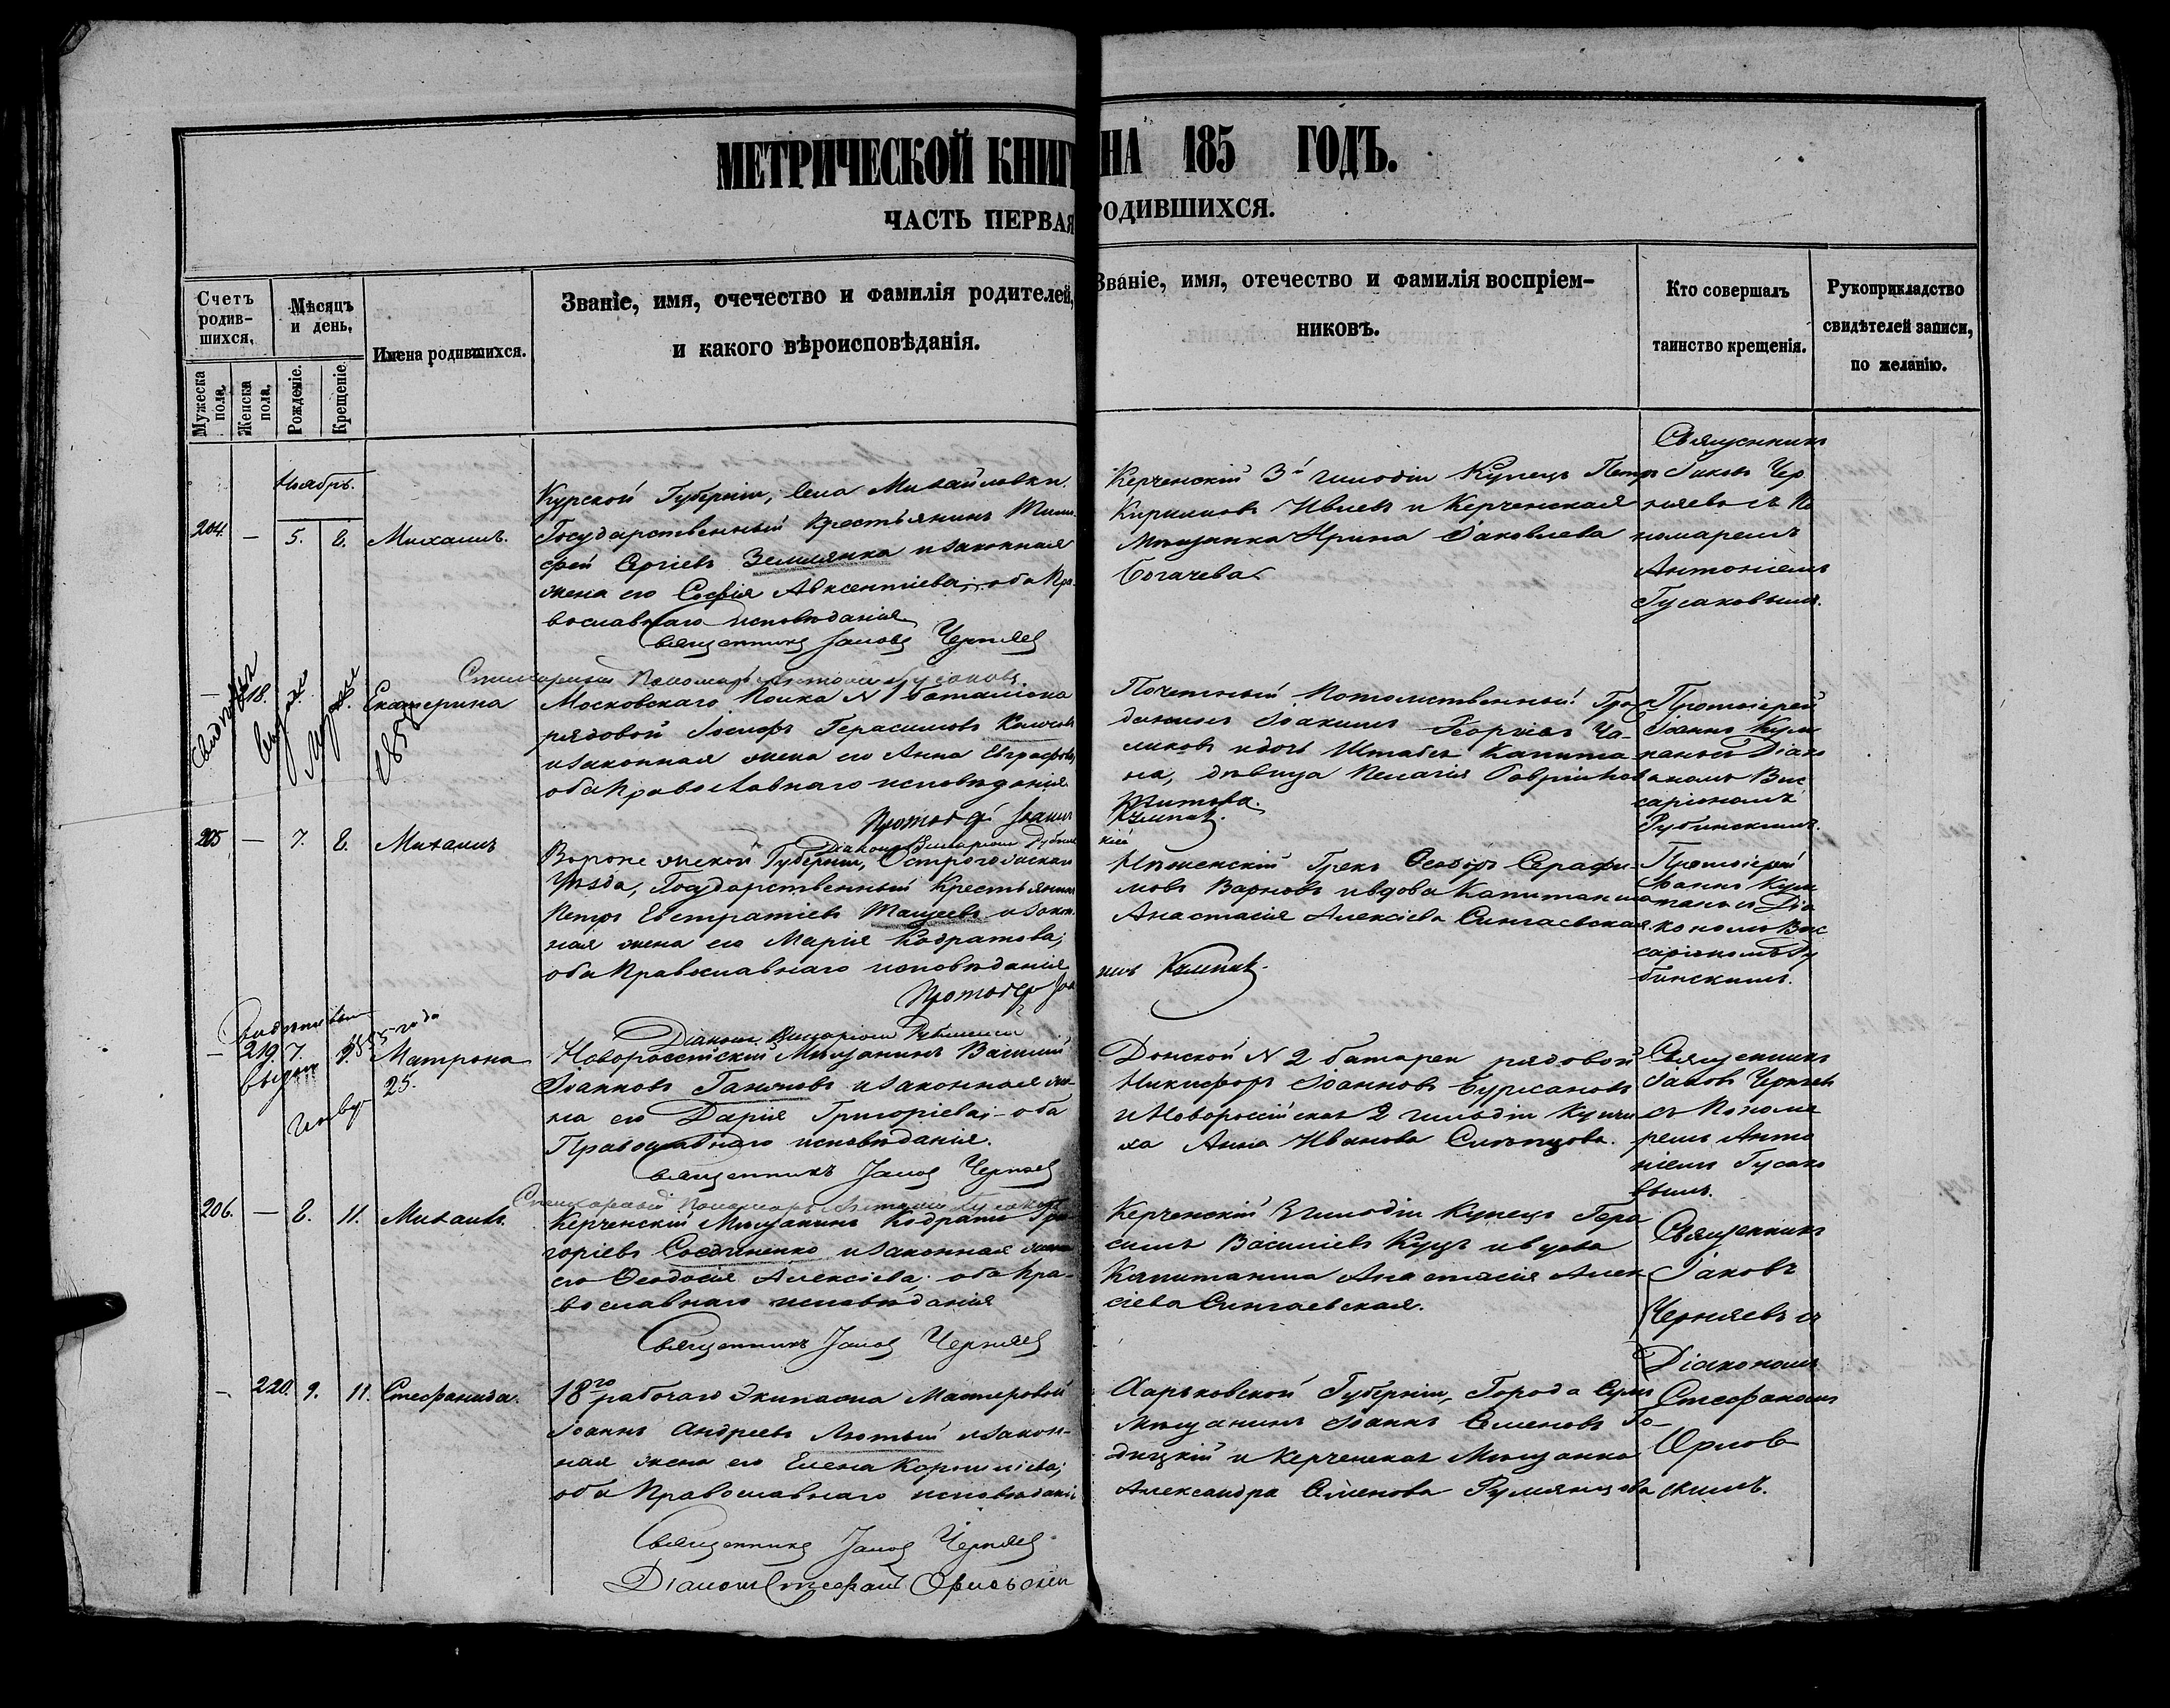 МЕТРИЧЕСКОЙ КНИГ НА 185 ГОДЪ.
ЧАСТЬ ПЕРВАЯ РОДИВШИХСЯ.
Счетъ родив-шихся.
Мѣсяцъ и день.
Имена родившихся.
Званіе, имя, очечество и фамилія родителей,
и какого вѣроисповѣданія.
Званіе, имя, отечество и фамилія воспріем-
никовъ.
Кто совершалъ
таинство крещенія.
Рукоприкладство
свидѣтелей записи,
по желанію.
Мужеска пола.
Женска пола.
Рожденіе.
Крещеніе.
Ноябрь.
204. — 5. 8. Михаилъ.
Курской Губерніи, Села Михайловки.
Государственный Крестьянинъ Тимо-
фей Сергіевъ Землянка и законная
жена его Софія Авксентіева; оба Пра-
вославнаго исповѣданія
Священникъ Іаковъ Черняев
Керченскій 3й гильдіи Купецъ Петръ
Кириловъ Ивлевъ и Керченская
Мѣщанка Ирина Іаковлева
Богачева
Священникъ
Іаковъ Чер
няевъ съ По
номаремъ
Антоніемъ
Гусаковымъ.
Пономарь Антоній Гусаковъ.
— 218. Екатерина
Московскаго Полка № 1 баталіона
рядовой Іосифъ Герасимовъ
и законная жена его Анна Евграфова,
оба Православнаго исповѣданія
Протоіер. Іоаннъ
Діаконъ Висаріонъ Рубинс
Почетный Потомственный Гра-
данинъ Іоакимъ Георгіевъ Ча-
ликовъ и дочь Штабсъ Капита
на, дѣвица Пелагія Гавріилова
Титова.
Кумпан.
Протоіерей
Іоаннъ Кум
панъ съ Діак
ономъ Вис
саріономъ
Рубинскимъ.
205 — 7. 8. Михаилъ
Воронежской Губерніи, Острогожскаго
Уѣзда, Государственный Крестьянинъ
Петръ Евстратіевъ Тащеевъ и закон
ная жена его Марія Кодратова;
оба Православнаго исповѣданія
Протоіер. Іоа
Діаконъ Висаріонъ Рубинскій
кій
Нѣженскій Грекъ Ѳеодоръ Серафи-
мовъ Варновъ и вдова Капитанша
Анастасія Алексіева Сингаевская.
нъ Кумпан.
Протоіерей
Іоаннъ Кум
панъ съ Діа
кономъ Вис
саріономъ Ру
бинскимъ.
— 219. 7. 9. Матрона
Новороссійскій Мѣщанинъ Василій
Іоанновъ Ганжовъ и законная же-
на его Дарія Григоріева; оба
Православнаго исповѣданія.
Священникъ Іаков Черняев
Пономарь Антоній Гусаковъ
Донской № 2 батареи рядовой
Никифоръ Іоанновъ Бурсановъ
и Новоросійская 2 гильдіи купчи
ха Анна Иванова Слѣпцова.
Священникъ
Іаковъ Черняевъ
съ Понома
ремъ Анто
ніемъ Гусако
вымъ.
206. — 8. 11. Михаилъ.
Керченскій Мѣщанинъ Кодратъ Гри-
горіевъ Соединенко и законная жена
его Ѳеодосія Алексіева; оба Пра-
вославнаго исповѣданія
Священникъ Іаков Черняев
Керченскій 3 гильдіи Купецъ Гера
симъ Василіевъ Куцъ и вдова
Капитанша Анастасія Алек
сіева Сингаевская.
Священникъ
Іаковъ
Черняевъ съ
Діакономъ
Стефаномъ
Орлов
скимъ.
— 220. 9. 11. Стефанида.
18го рабочаго Экипажа Мастеровой
Іоаннъ Андреевъ Лютый и закон-
ная жена его Елена Корниліева;
оба Православнаго исповѣданія
Священникъ Іаков Черняев
Діаконъ Стефанъ Орловскій
Харьковской Губерніи, Города Сумъ
Мѣщанинъ Іоаннъ Семеновъ Го-
дицкій и Керченская Мѣщанка
Александра Семенова Румянцова